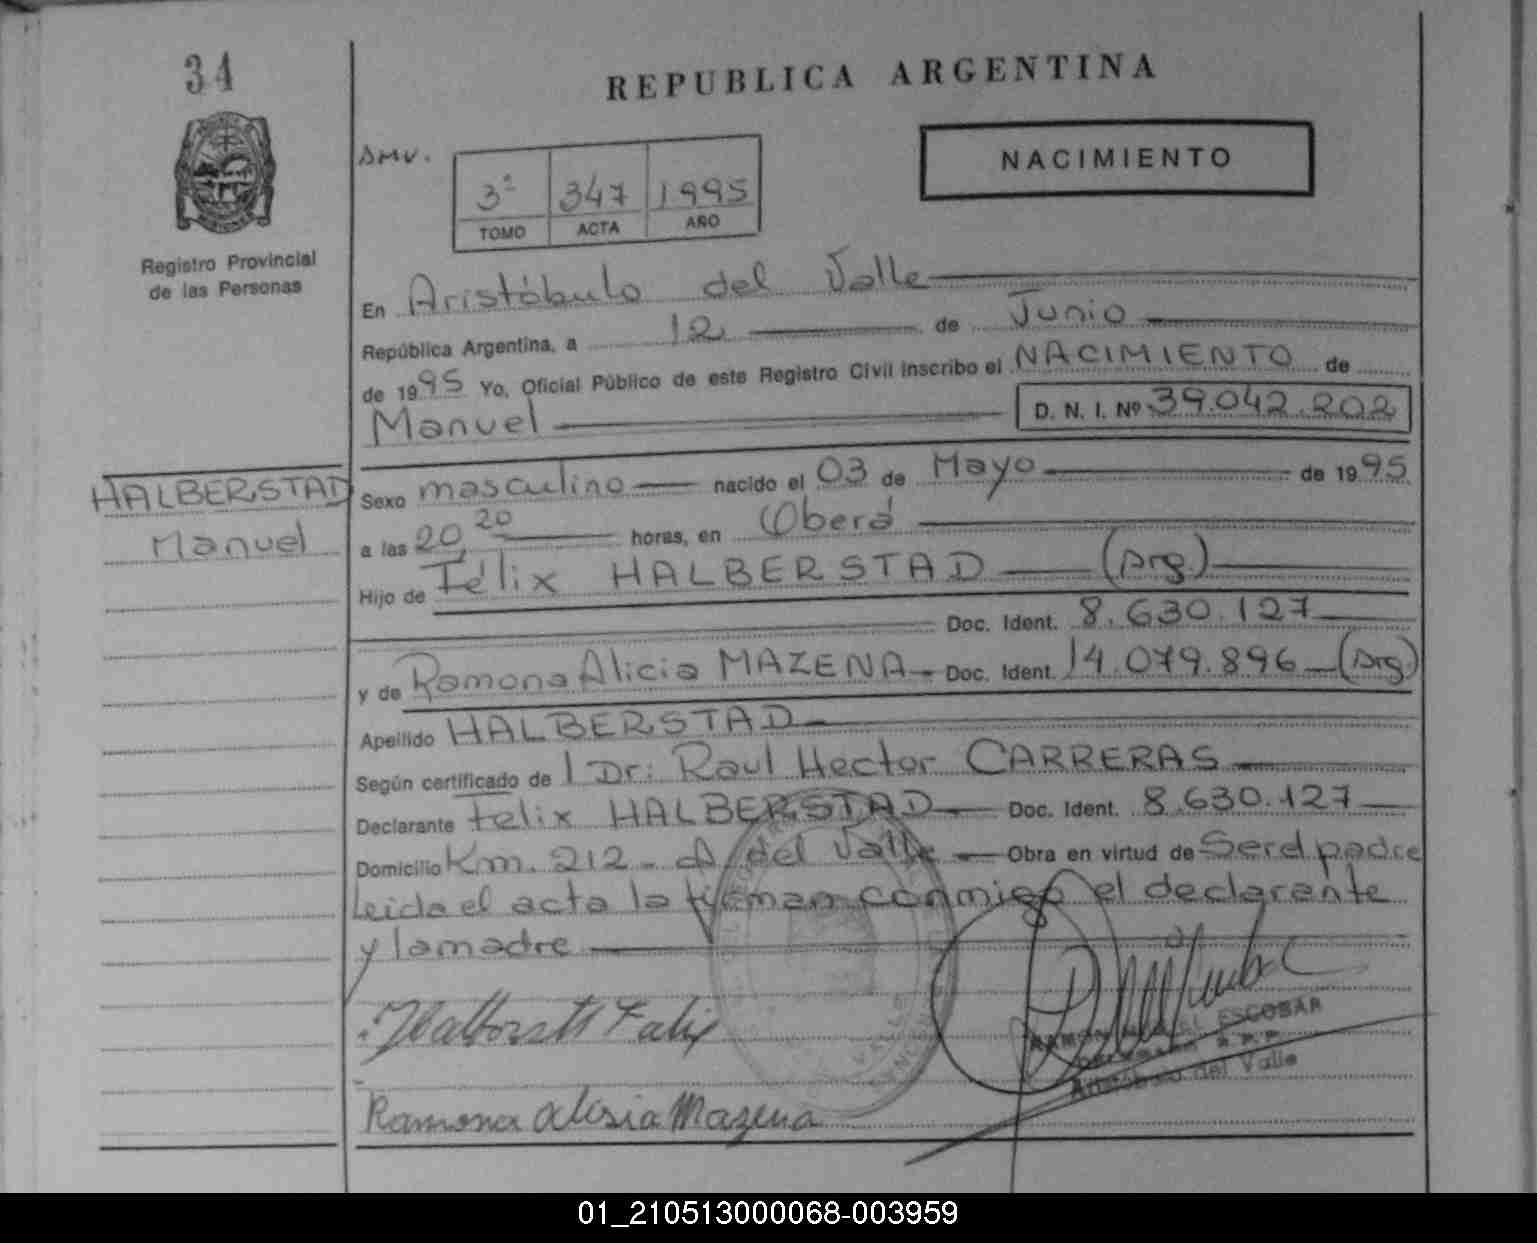 34
REPUBLICA ARGENTINA
NACIMIENTO
3º 347 1995
TOMO ACTA AÑO
Registro Provincial
de las Personas
En Aristóbulo del Valle
República Argentina, a 12 de Junio
de 1995 Yo, Oficial Público de este Registro Civil inscribo el NACIMIENTO de
Manuel D. N. I. Nº 39.042.202
HALBERSTAD
Manuel
Sexo masculino nacido el 03 de Mayo de 1995
a las 20,20 horas, en Oberá
Hijo de Félix HALBERSTAD (Arg.)
Doc. Ident. 8.630.127
y de Ramona Alicia MAZENA Doc. Ident. 14.079.896 (Arg)
Apellido HALBERSTAD
Según certificado de l Dr: Raul Hector CARRERAS
Declarante Felix HALBERSTAD Doc. Ident. 8.630.127
Domicilio Km. 212 - A del Valle Obra en virtud de Ser el padre
Leida el acta la firman conmigo el declarante
y la madre
Ramona Mazena
ESCOBAR
Aristóbulo del Valle
01_210513000068-003959